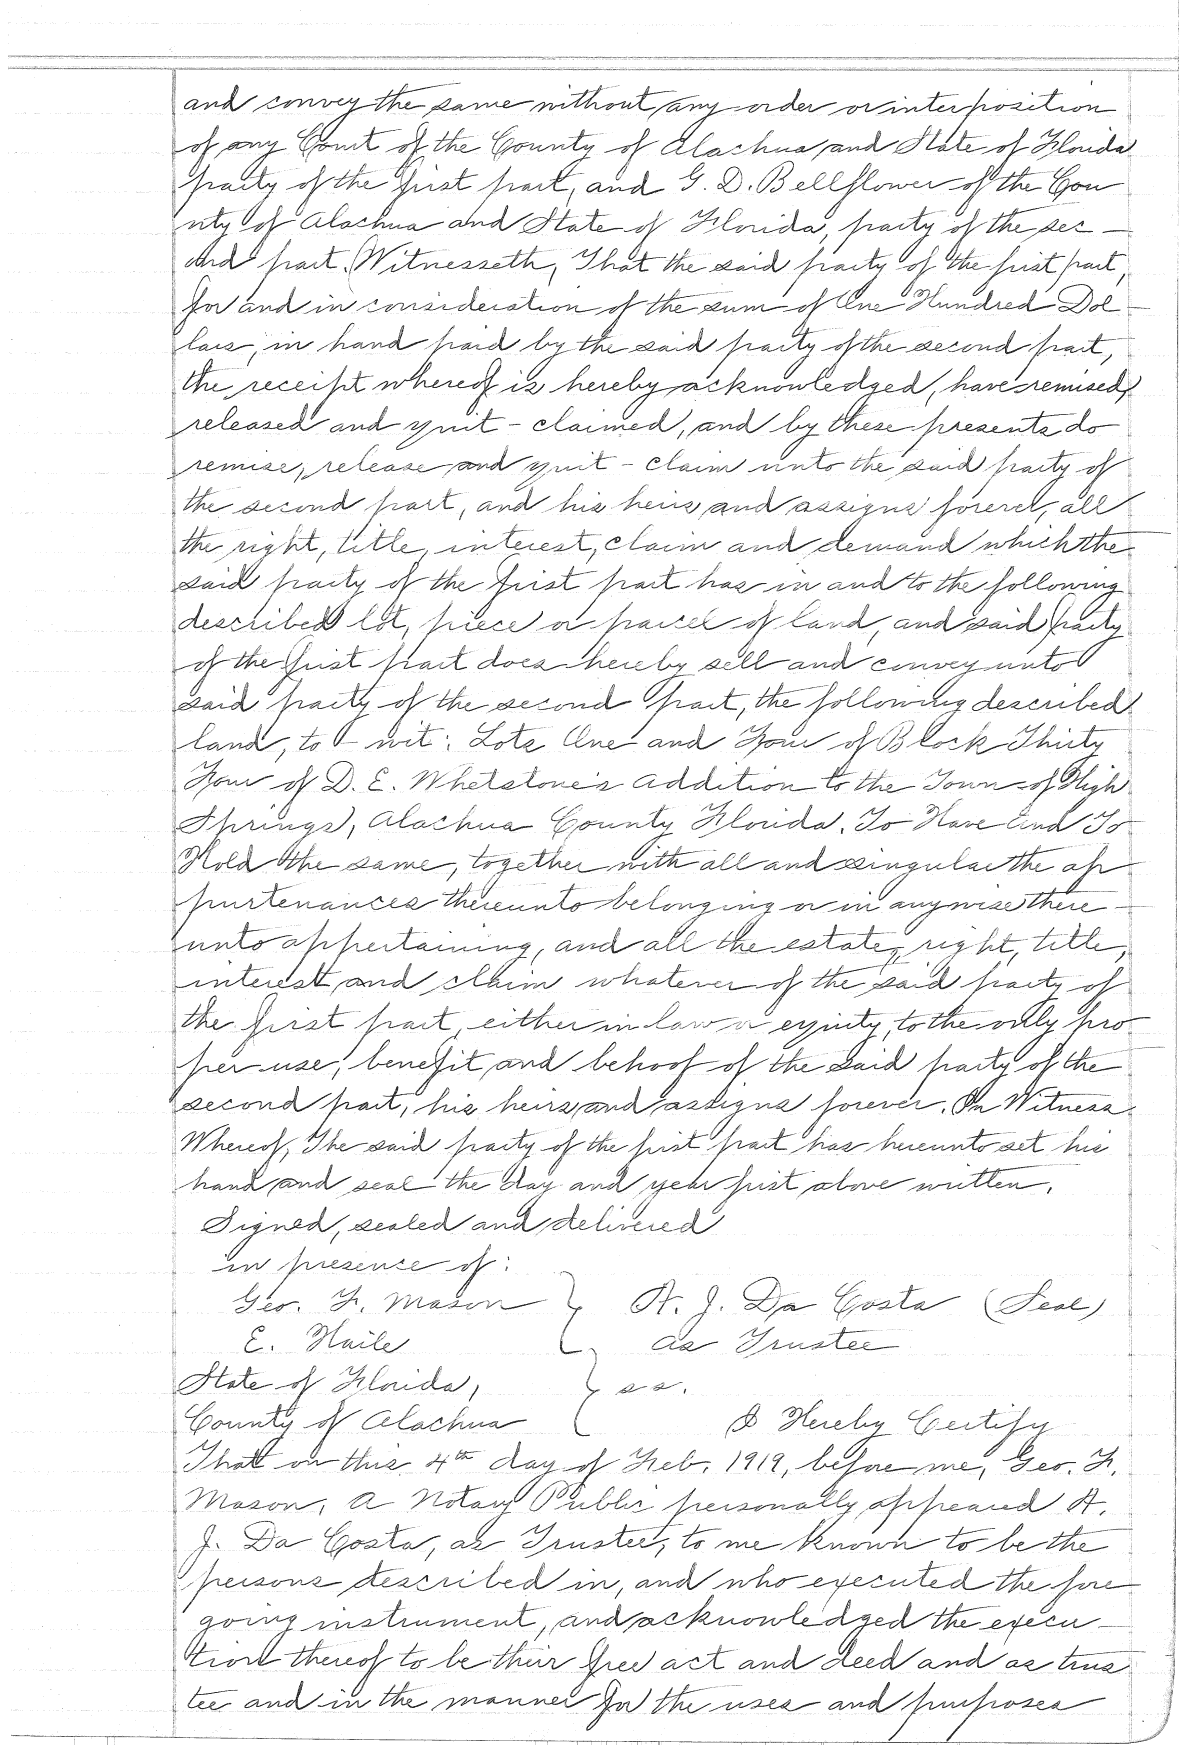 and convey the same without any order or interposition
of any Court of the County of Alachua and State of Florida
party of the first part, and G. D. Bellflower of the Cou
nty of Alachua and State of Florida, party of the sec -
ond part. Witnesseth, That the said party of the first part,
for and in consideration of the sum of One Hundred Dol -
lars, in hand paid by the said party of the second part,
the receipt whereof is hereby acknowledged, have remised,
released and quit - claimed, and by these presents do
remise, release and quit - claim unto the said party of
the second part, and his heirs and assigns forever, all
the right, title, interest, claim and demand which the
said party of the first part has in and to the following
described lot, piece or parcel of land, and said party
of the first part does hereby sell and convey unto
said party of the second part, the following described
land, to - wit: Lots One and Four of Block Thirty
Four of D. E. Whetstone's Addition to the Town of High
Springs, Alachua County Florida. To Have And To
Hold the same, together with all and singular the ap
purtenances thereunto belonging or in anywise there -
unto appertaining, and all the estate, right, title,
interest and claim whatever of the said party of
the first part, either in law or equity, to the only pro
per use, benefit, and behoof of the said party of the
second part, his heirs and assigns forever. In Witness
Whereof, The said party of the first part has hereunto set his
hand and seal the day and year first above written.
Signed, sealed and delivered
in presence of:
Geo. F. Mason } A. J. Da Costa (Seal)
E. Haile as Trustee
State of Florida, } ss.
County of Alachua I Hereby Certify
That on this 4th day of Feb. 1919, before me, Geo. F.
Mason, a Notary Public personally appeared A.
J. Da Costa, as Trustee, to me known to be the
persons described in, and who executed the fore
going instrument, and acknowledged the execu -
tion thereof to be their free act and deed and as trus
tee and in the manner for the uses and purposes